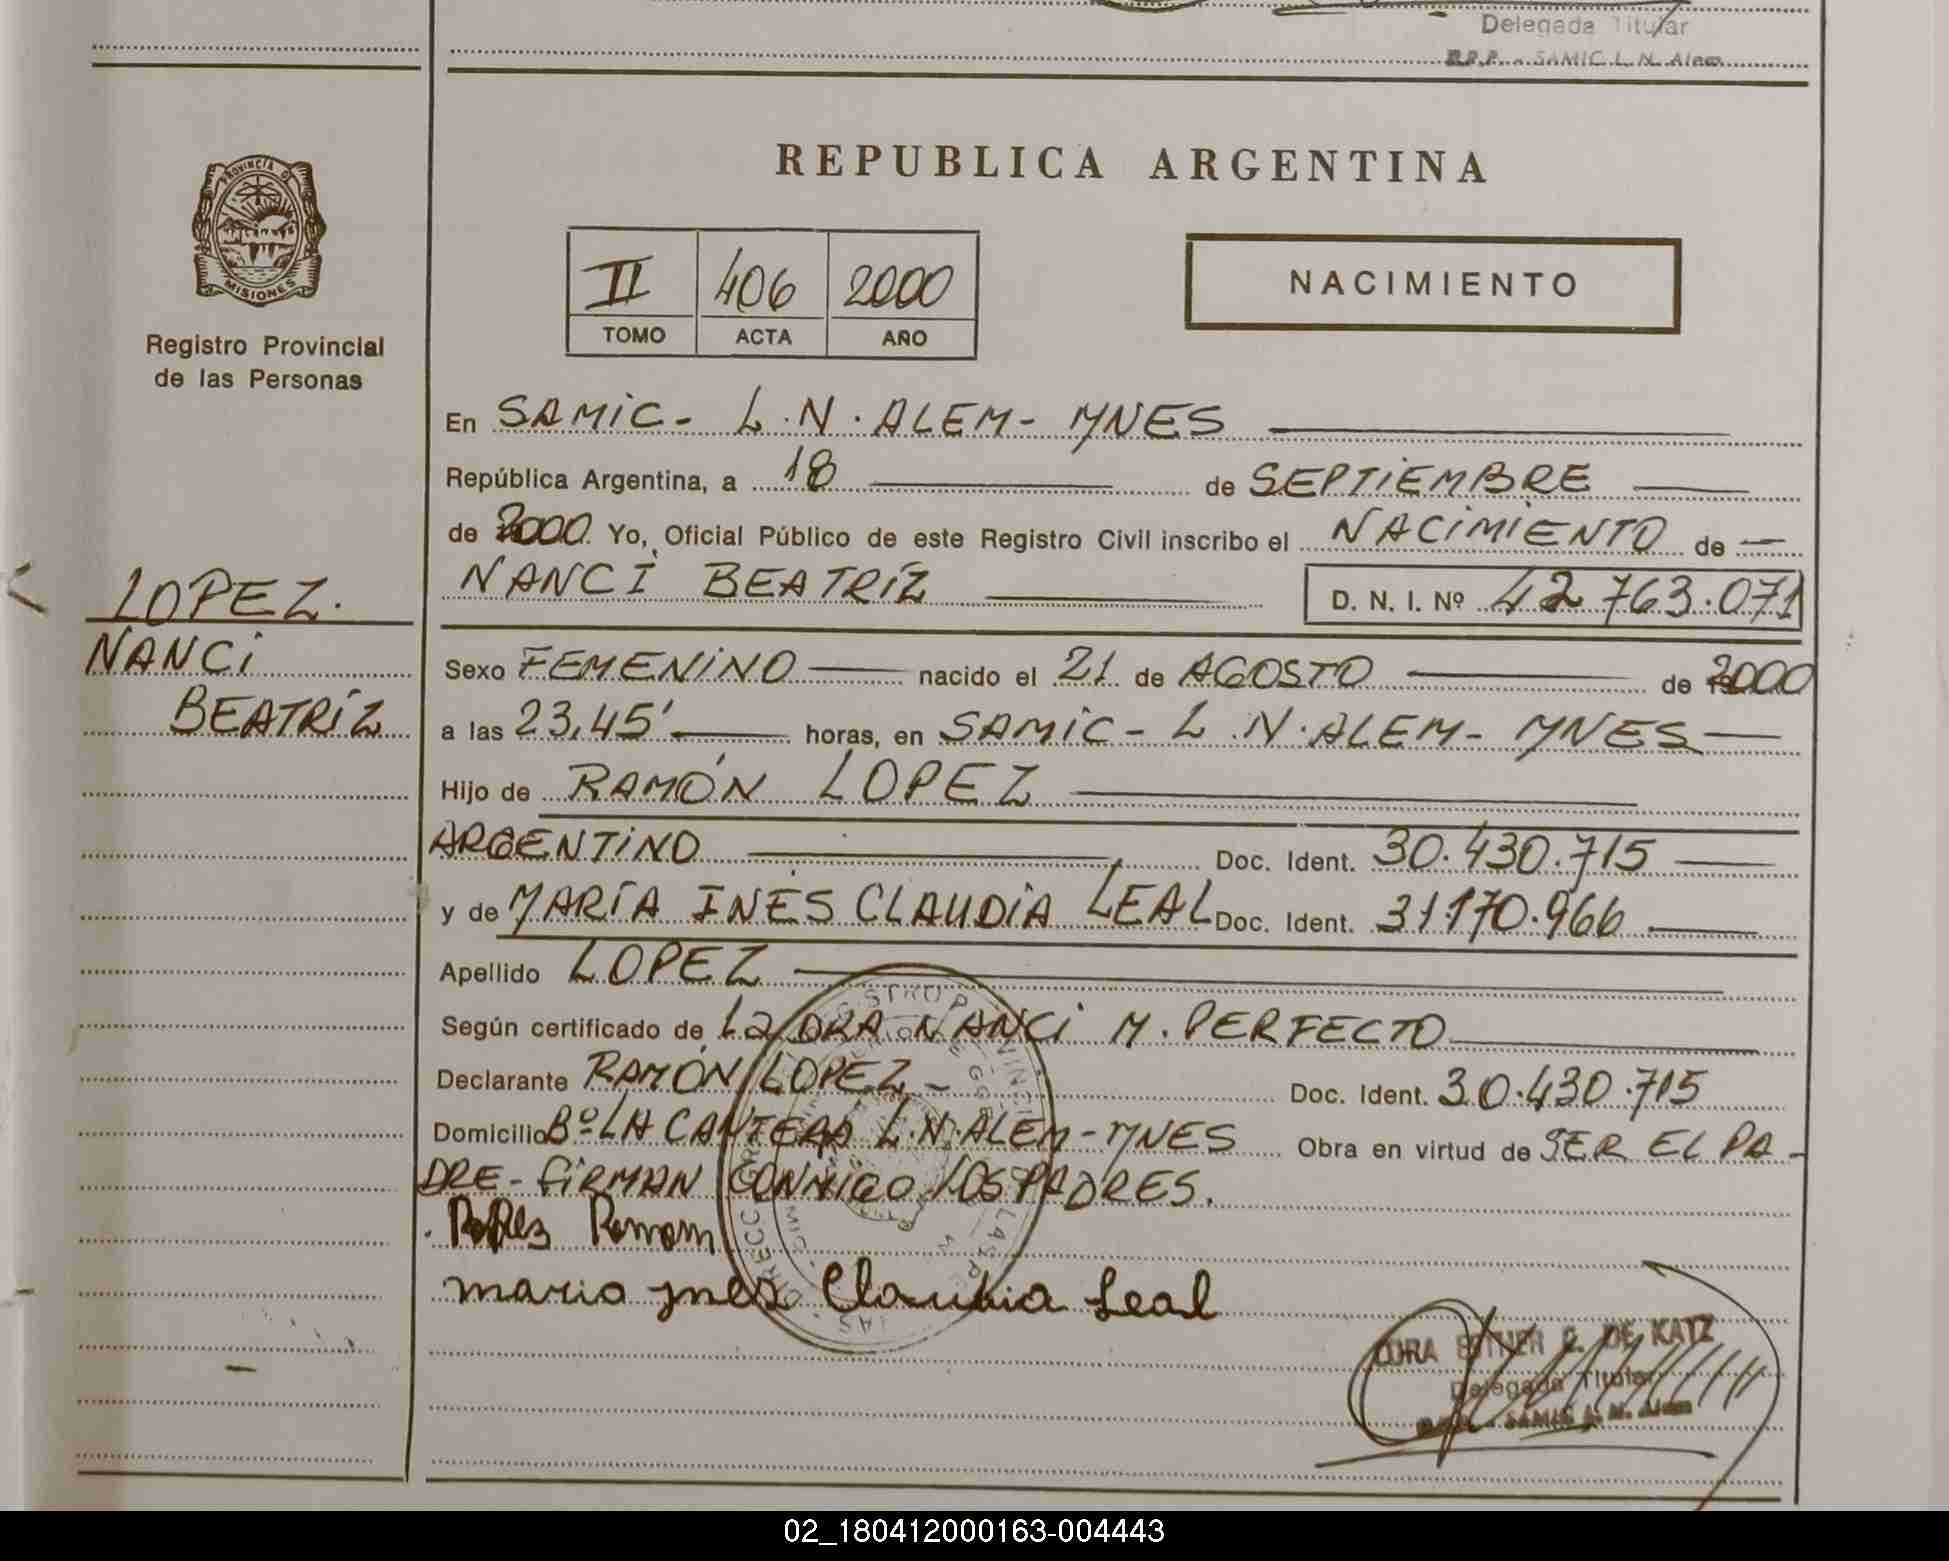 Delegada Titular
R.P.P. - SAMIC L. N. Alem
PROVINCIA DE
MISIONES
Registro Provincial
de las Personas
REPUBLICA ARGENTINA
II 406 2000
TOMO ACTA AÑO
NACIMIENTO
En SAMIC - L.N. ALEM - MNES
República Argentina, a 18 de SEPTIEMBRE
de 2000. Yo, Oficial Público de este Registro Civil inscribo el NACIMIENTO de
NANCI BEATRÍZ D. N. I. Nº 42.763.071
LOPEZ.
NANCI
BEATRÍZ
Sexo FEMENINO nacido el 21 de AGOSTO de 2000
a las 23,45' horas, en SAMIC - L.N. ALEM - MNES
Hijo de RAMÓN LOPEZ
ARGENTINO Doc. Ident. 30.430.715
y de MARÍA INÉS CLAUDIA LEAL Doc. Ident. 31.170.966
Apellido LOPEZ
Según certificado de La DRA NANCI M. PERFECTO
Declarante RAMÓN LOPEZ - Doc. Ident. 30.430.715
Domicilio Bº LA CANTERA L.N. ALEM - MNES Obra en virtud de SER EL PA-
DRE - FIRMAN CONMIGO LOS PADRES.
Ramom
maria ynes Claudia Leal
CORA ESTHER C. DE KATZ
Delegada Titular
SAMIC L. N. Alem
02_180412000163-004443